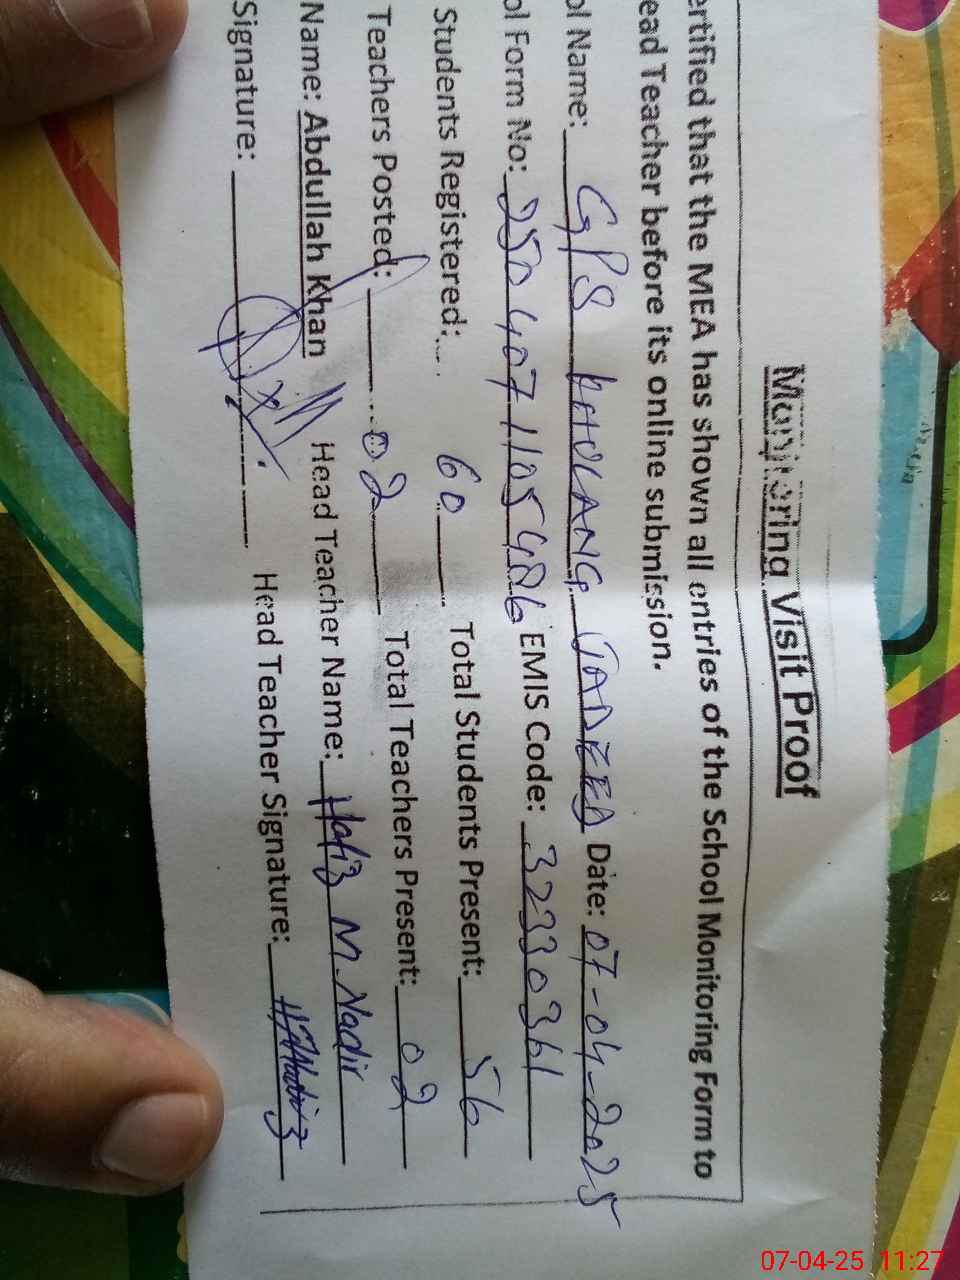 Monitoring Visit Proof
ertified that the MEA has shown all entries of the School Monitoring Form to
ead Teacher before its online submission.
ol Name: GPS KHULANG JADEED Date: 07-04-2025
ol Form No: 2504071105486 EMIS Code: 32330361
Students Registered: 60 Total Students Present: 56
Teachers Posted: 02 Total Teachers Present: 02
Name: Abdullah Khan Head Teacher Name: Hafiz M. Nadir
Signature: Head Teacher Signature:
07-04-25 11:27